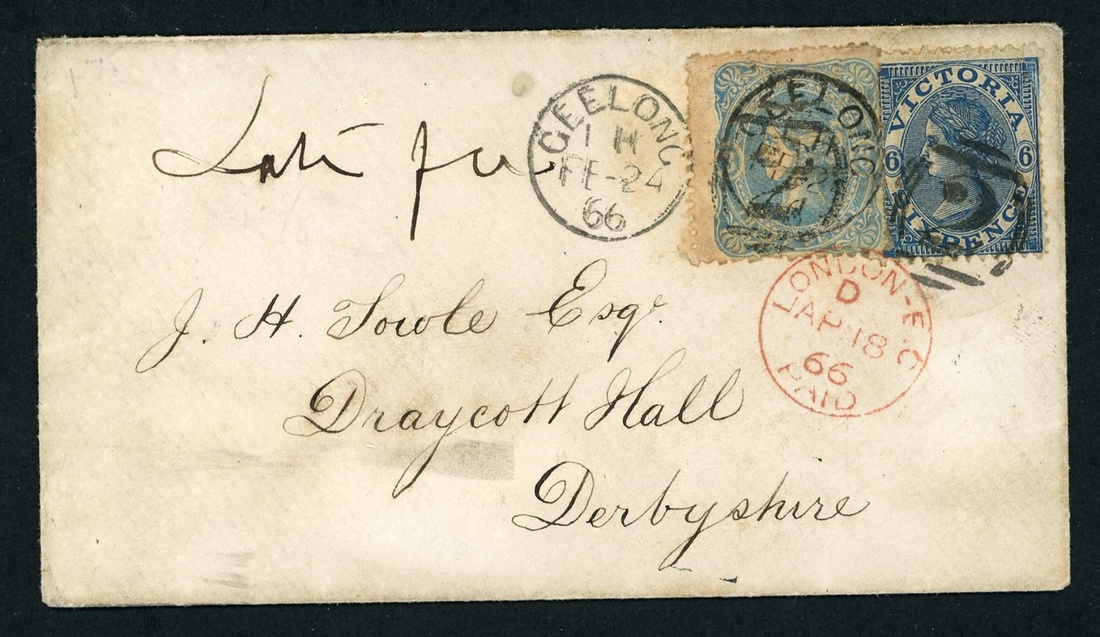 Late fee
GEELONG
1 H
FE-24
66
GEELONG
VICTORIA
6 6
SIXPENCE
LONDON-E.C
D
AP 18
66
PAID
J. H. Towle Esqr.
Draycott Hall
Derbyshire